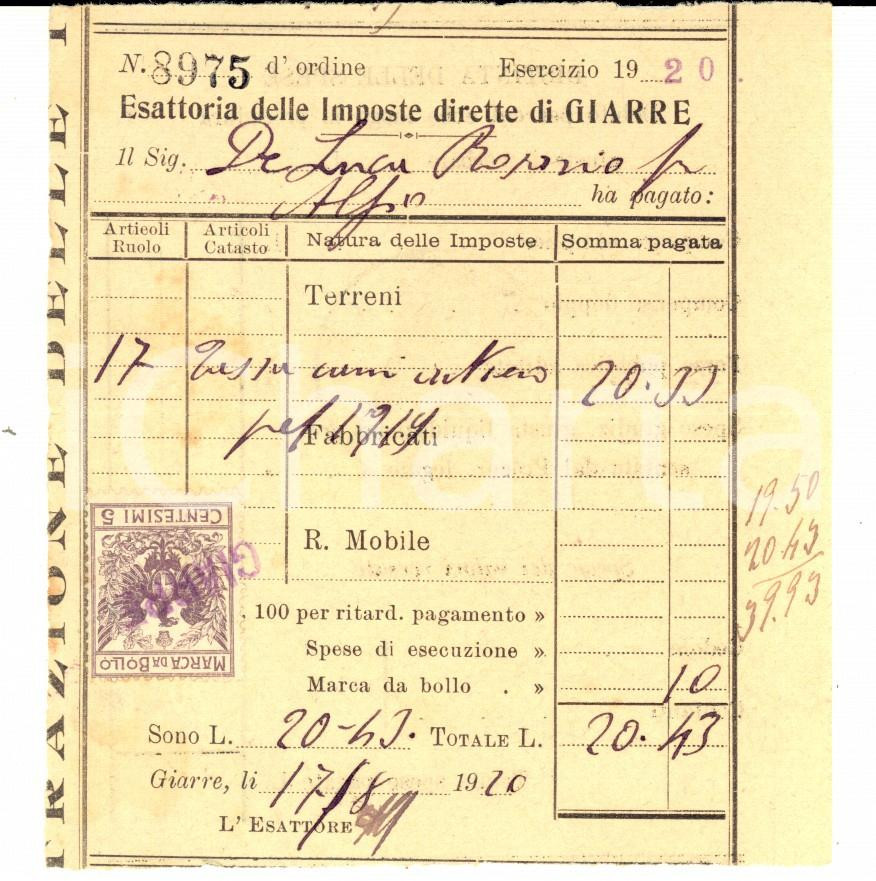 N. 8975 d' ordine Esercizio 19 20
Esattoria delle Imposte dirette di GIARRE
Il Sig. De Luca Rosario fu
Alfio ha pagato:
Articoli Ruolo Articoli Catasto Natura delle Imposte Somma pagata
Terreni
17 Tassa 20.33
pel 1919
Fabbricati
19.50
CENTESIMI 5
R. Mobile
20.43
GIARRE
39.93
MARCA DA BOLLO
, 100 per ritard. pagamento »
Spese di esecuzione »
Marca da bollo . » 10
Sono L. 20-43. TOTALE L. 20.43
Giarre, li 17/8 1920
L' ESATTORE
RAZIONE DELLE
iCharta